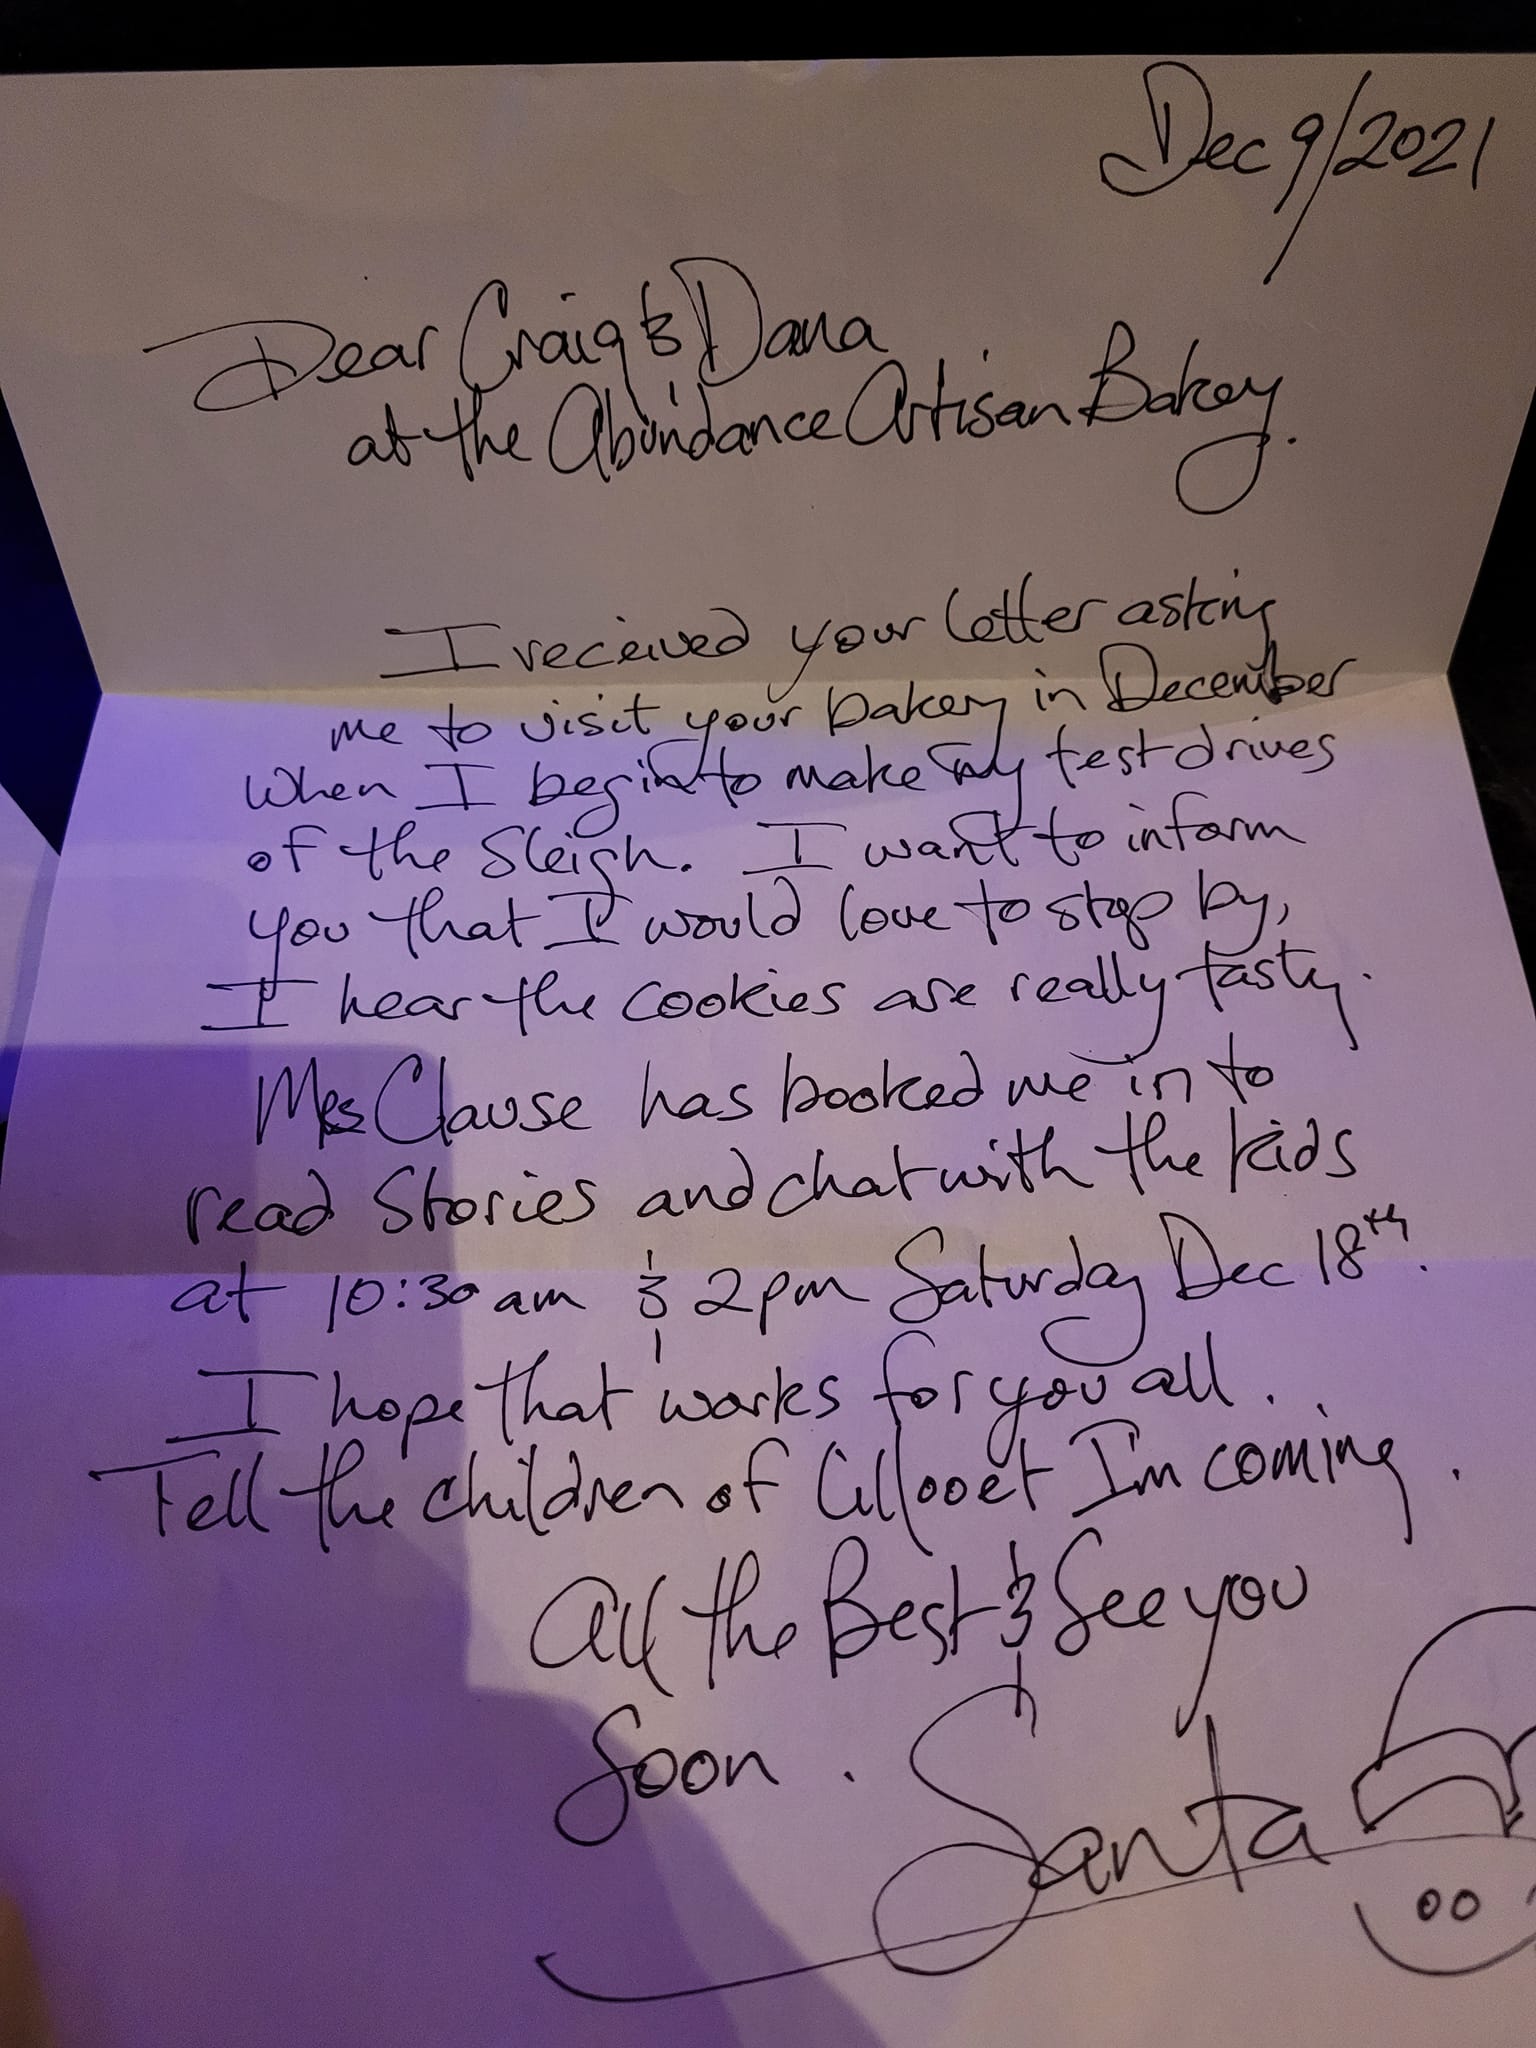 Dec 9/2021
Dear Craig & Dana
at the Abundance Artisan Bakey.
I received your letter asking
me to visit your bakery in December
when I begin to make my test drives
of the Sleigh. I want to inform
you that I would love to stop by,
I hear the cookies are really tasty.
Mrs Clause has booked me in to
read Stories and chat with the kids
at 10:30 am & 2pm Saturday Dec 18th.
I hope that works for you all.
Tell the children of Lillooet I'm coming.
All the Best & See you
Soon.
Santa